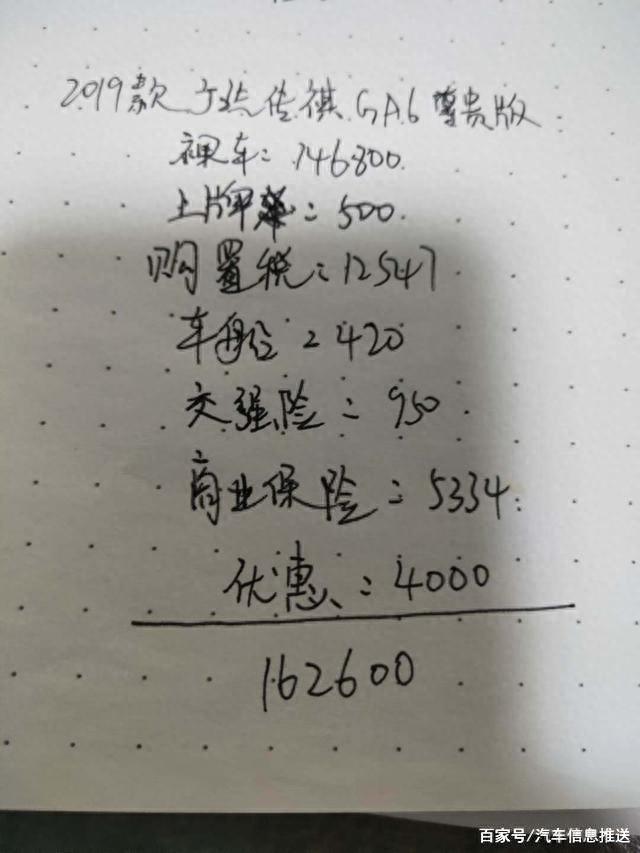 2019款 广汽传祺 GA6 尊贵版
裸车: 146800.
上牌: 500.
购置税: 12547
车船: 420
交强险: 950.
商业保险: 5334.
优惠: 4000
162600
百家号/汽车信息推送